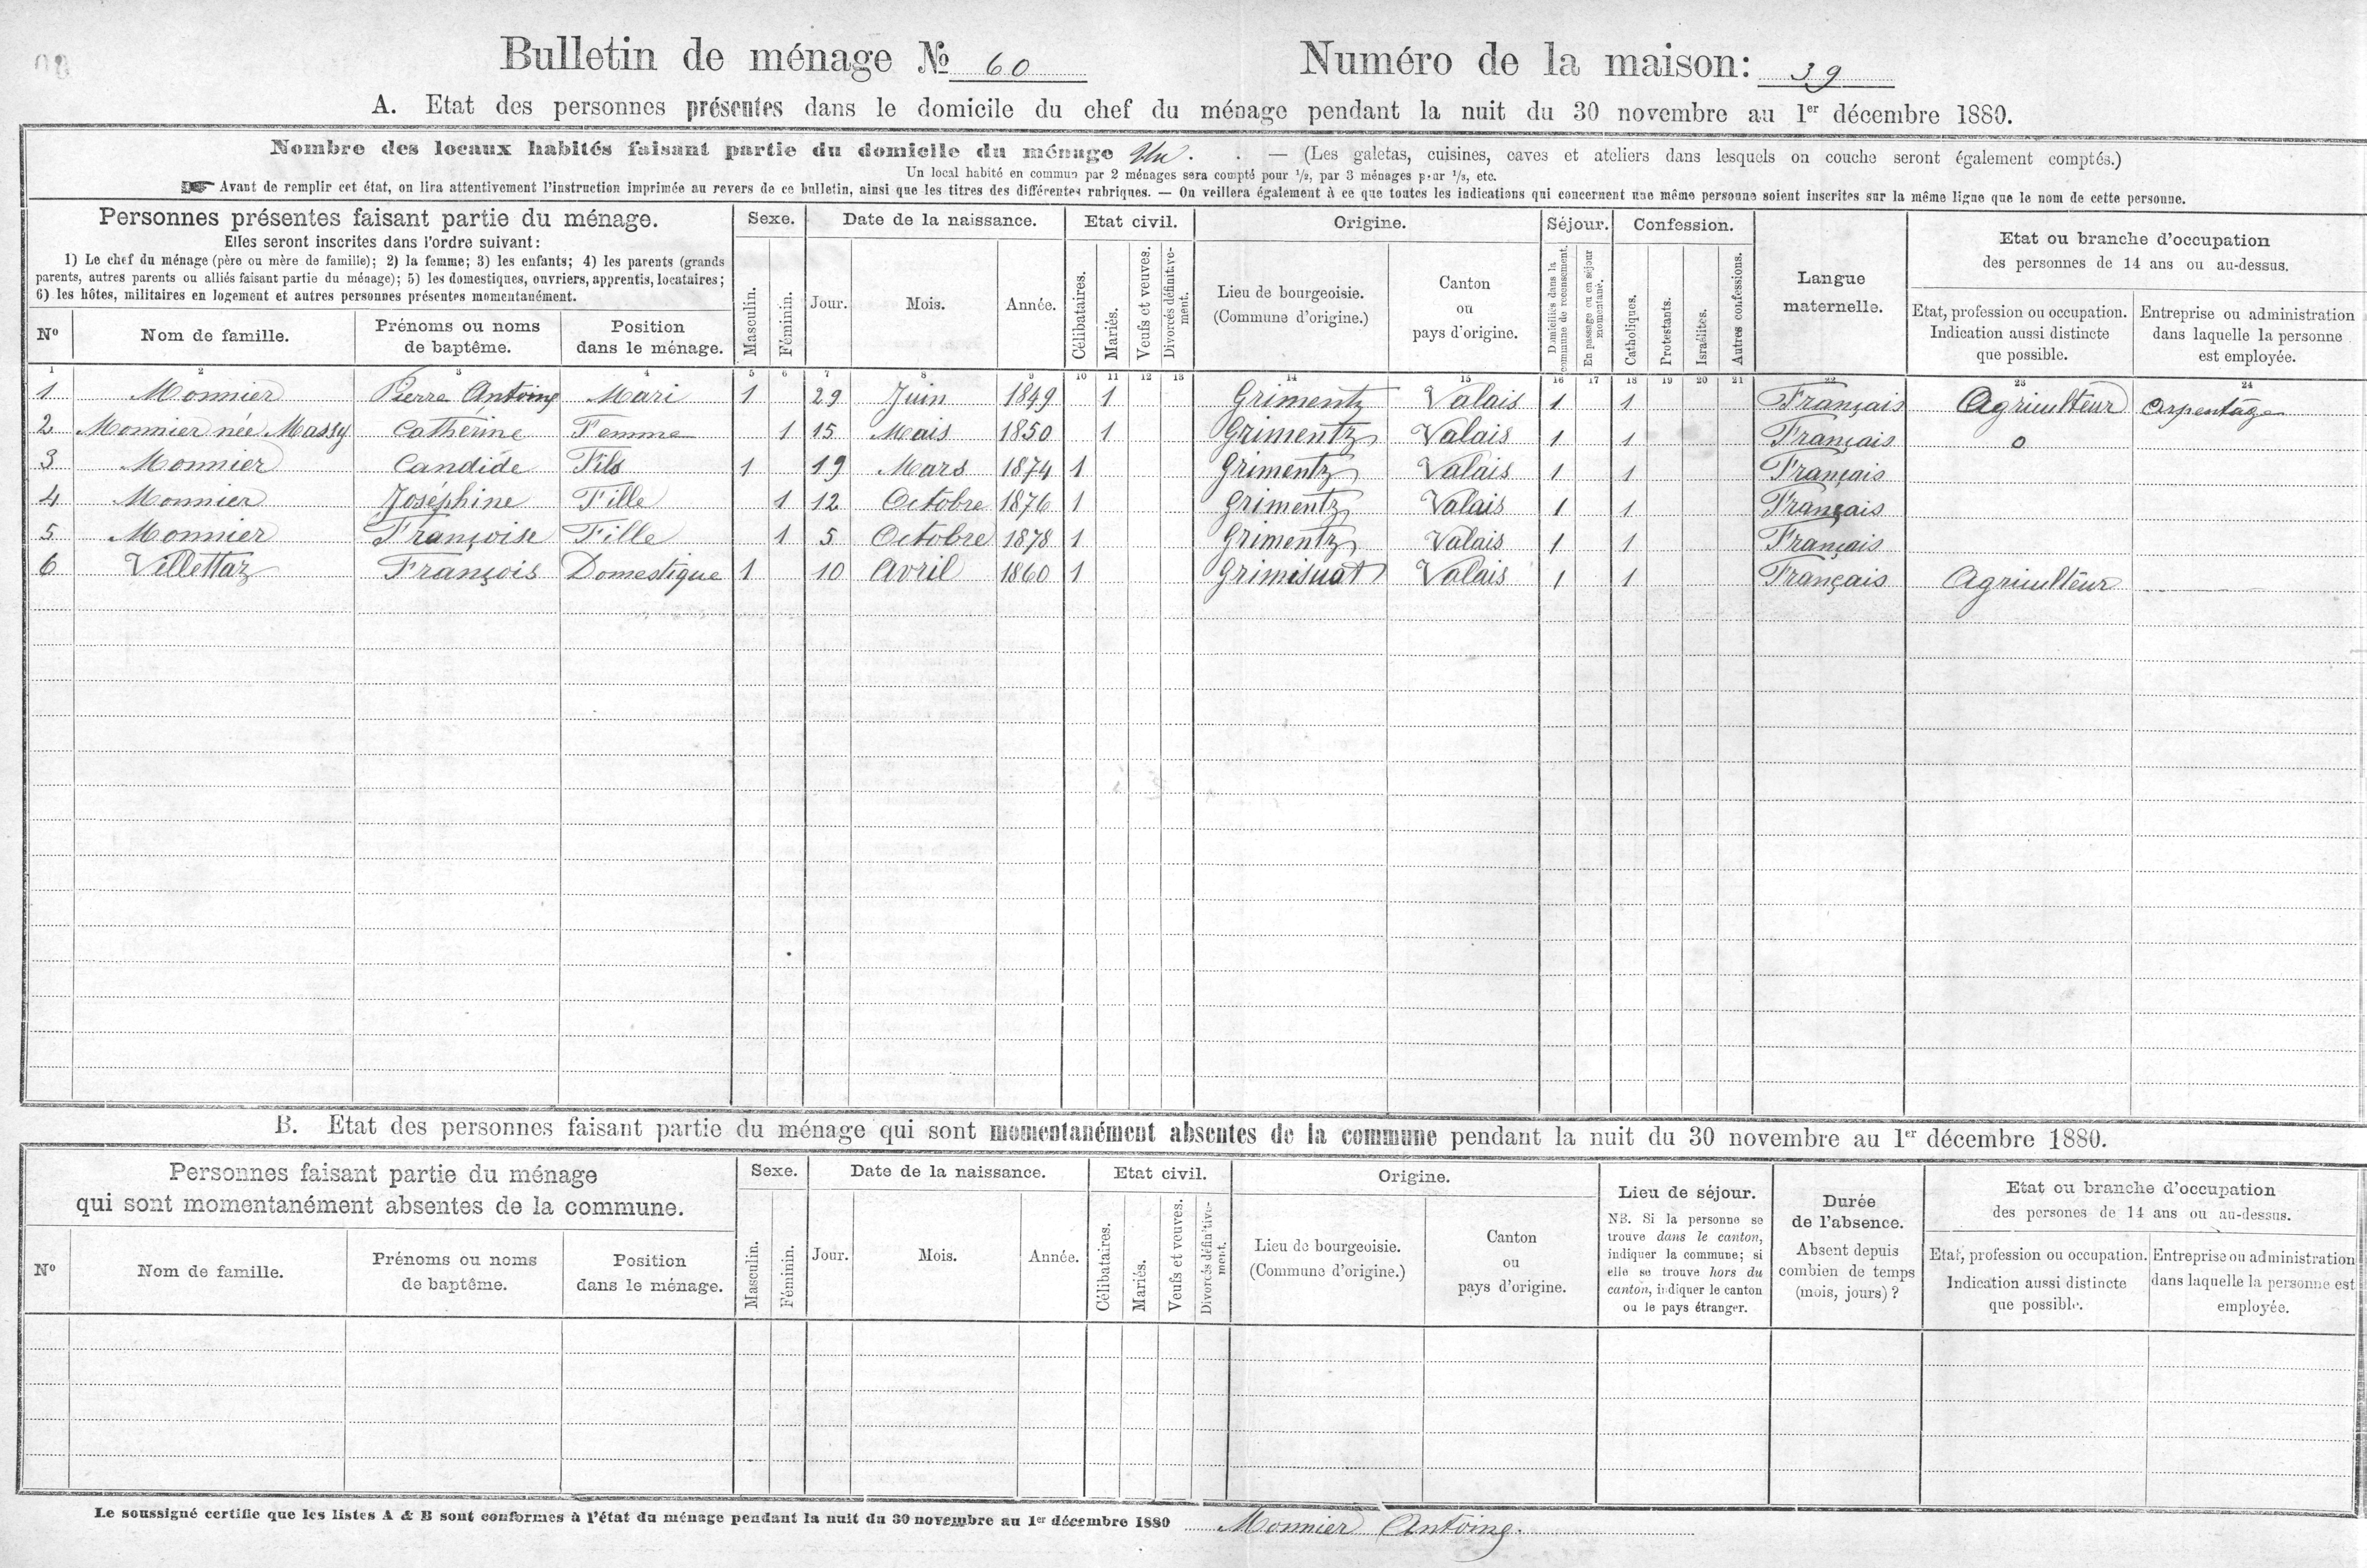 Bulletin de ménage № 60 Numéro de la maison: 39
A. Etat des personnes présentes dans le domicile du chef du ménage pendant la nuit du 30 novembre au 1er décembre 1880.
Nombre des locaux habités faisant partie du domicile du ménage Un. . — (Les galetas, cuisines, caves et ateliers dans lesquels on couche seront également comptés.)
Un local habité en commun par 2 ménages sera compté pour 1/2, par 3 ménages pour 1/3, etc.
☛ Avant de remplir cet état, on lira attentivement l'instruction imprimée au revers de ce bulletin, ainsi que les titres des différentes rubriques. — On veillera également à ce que toutes les indications qui concernent une même personne soient inscrites sur la même ligne que le nom de cette personne.
Personnes présentes faisant partie du ménage.
Elles seront inscrites dans l'ordre suivant:
1) Le chef du ménage (père ou mère de famille); 2) la femme; 3) les enfants; 4) les parents (grands
parents, autres parents ou alliés faisant partie du ménage); 5) les domestiques, ouvriers, apprentis, locataires;
6) les hôtes, militaires en logement et autres personnes présentes momentanément.
No
Nom de famille.
Prénoms ou noms
de baptême.
Position
dans le ménage.
Sexe.
Masculin.
Féminin.
Date de la naissance.
Jour.
Mois.
Année.
Etat civil.
Célibataires.
Mariés.
Veufs et veuves.
Divorcés définitive-
ment.
Origine.
Lieu de bourgeoisie.
(Commune d'origine.)
Canton
ou
pays d'origine.
Séjour.
Domiciliés dans la
commune de recensement.
En passage ou en séjour
momentané.
Confession.
Catholiques.
Protestants.
Israélites.
Autres confessions.
Langue
maternelle.
Etat ou branche d'occupation
des personnes de 14 ans ou au-dessus.
Etat, profession ou occupation.
Indication aussi distincte
que possible.
Entreprise ou administration
dans laquelle la personne
est employée.
1 2 3 4 5 6 7 8 9 10 11 12 13 14 15 16 17 18 19 20 21 22 23 24
1 Monnier Pierre Antoine Mari 1 29 Juin 1849 1 Grimentz Valais 1 1 Français Agriculteur Arpentage
2 Monnier née Massy Catherine Femme 1 15 Mais 1850 1 Grimentz Valais 1 1 Français o
3 Monnier Candide Fils 1 19 Mars 1874 1 Grimentz Valais 1 1 Français
4 Monnier Joséphine Fille 1 12 Octobre 1876 1 Grimentz Valais 1 1 Français
5 Monnier Françoise Fille 1 5 Octobre 1878 1 Grimentz Valais 1 1 Français
6 Villettaz François Domestique 1 10 Avril 1860 1 Grimisuat Valais 1 1 Français Agriculteur
B. Etat des personnes faisant partie du ménage qui sont momentanément absentes de la commune pendant la nuit du 30 novembre au 1er décembre 1880.
Personnes faisant partie du ménage
qui sont momentanément absentes de la commune.
No
Nom de famille.
Prénoms ou noms
de baptême.
Position
dans le ménage.
Sexe.
Masculin.
Féminin.
Date de la naissance.
Jour.
Mois.
Année.
Etat civil.
Célibataires.
Mariés.
Veufs et veuves.
Divorcés définitive-
ment.
Origine.
Lieu de bourgeoisie.
(Commune d'origine.)
Canton
ou
pays d'origine.
Lieu de séjour.
NB. Si la personne se
trouve dans le canton,
indiquer la commune; si
elle se trouve hors du
canton, indiquer le canton
ou le pays étranger.
Durée
de l'absence.
Absent depuis
combien de temps
(mois, jours)?
Etat ou branche d'occupation
des persones de 14 ans ou au-dessus.
Etat, profession ou occupation.
Indication aussi distincte
que possible.
Entreprise ou administration
dans laquelle la personne est
employée.
Le soussigné certifie que les listes A & B sont conformes à l'état du ménage pendant la nuit du 30 novembre au 1er décembre 1880 Monnier Antoine.